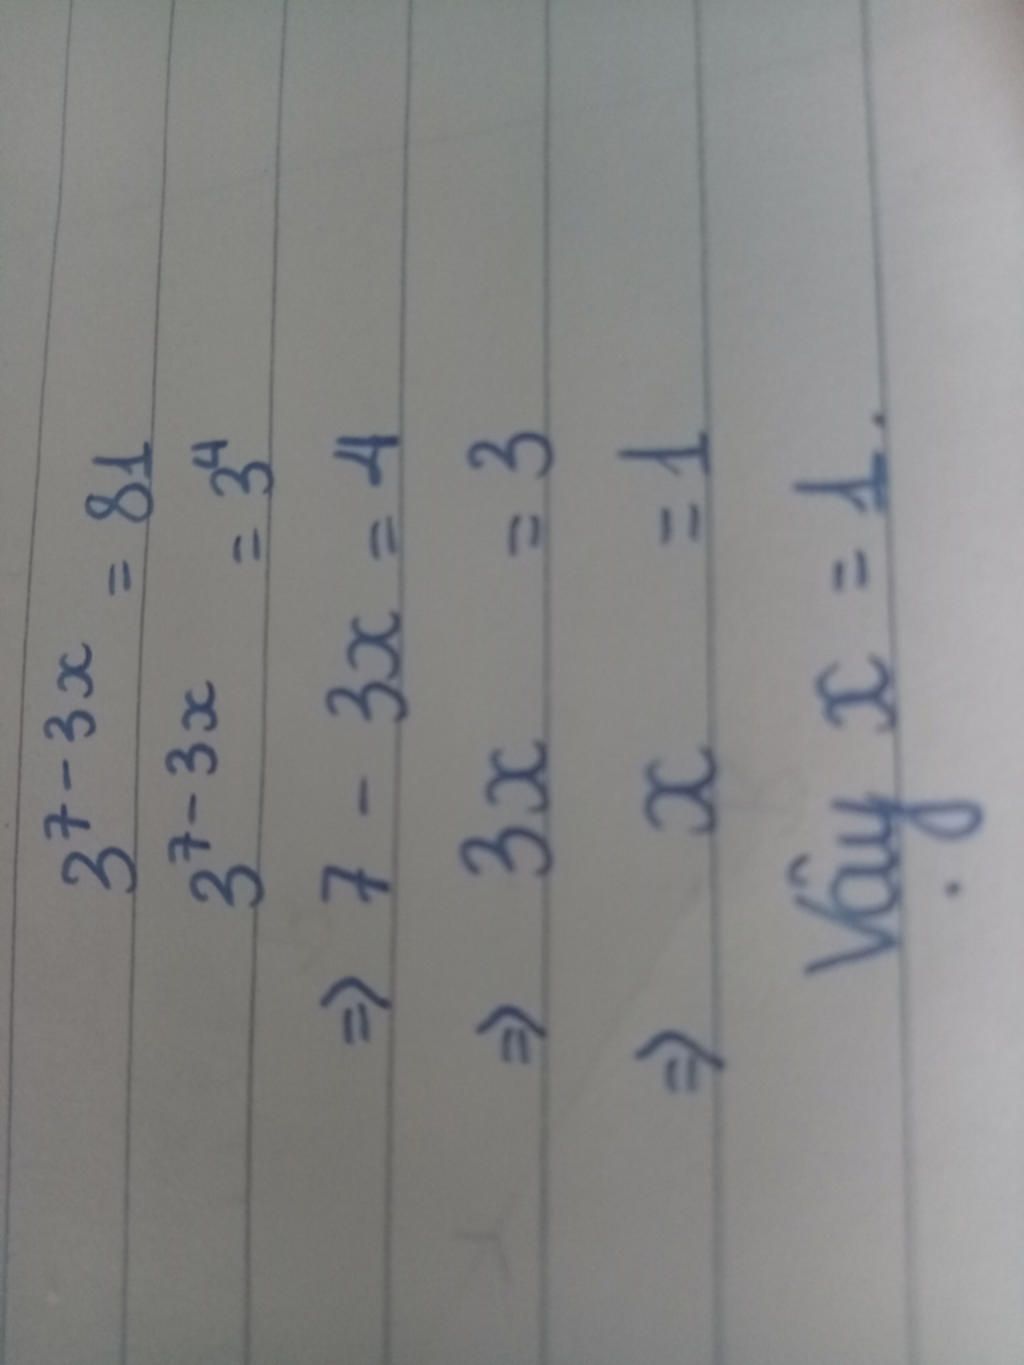 3⁷⁻³ˣ = 81
3⁷⁻³ˣ = 3⁴
=> 7 - 3x = 4
=> 3x = 3
=> x = 1
Vậy x = 1.